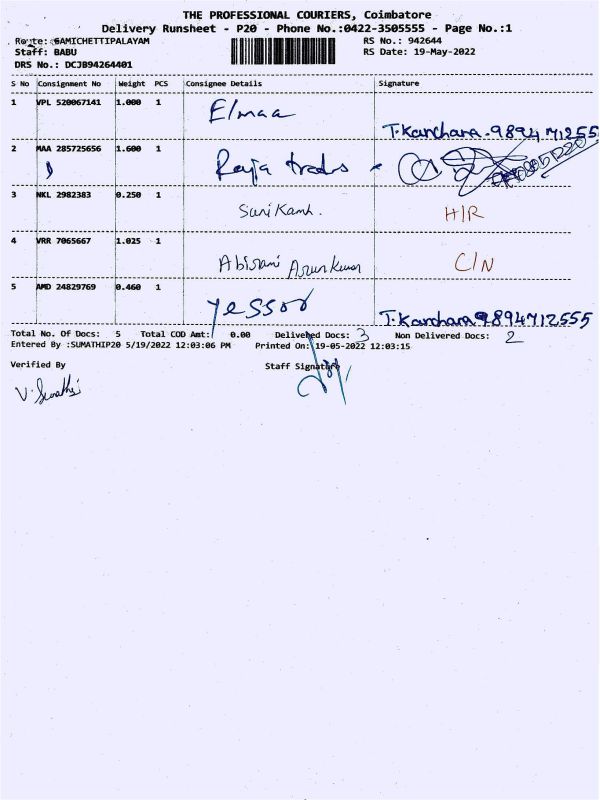 THE PROFESSIONAL COURIERS, Coimbatore
Delivery Runsheet - P20 - Phone No.:0422-3505555 - Page No.:1
Route: SAMICHETTIPALAYAM RS No.: 942644
Staff: BABU RS Date: 19-May-2022
DRS No.: DCJB94264401
S No Consignment No Weight PCS Consignee Details Signature
1 VPL 520067141 1.000 1 Elmaa T.Kanchana - 9894 71255
2 MAA 285725656 1.600 1 Raja trades
3 NKL 2982383 0.250 1 H/R
4 VRR 7065667 1.025 1 Abirami Arun Kumar C/N
5 AMD 24829769 0.460 1 yessor T.Kanchana 9894712555
Total No. Of Docs: 5 Total COD Amt: 0.00 Delivered Docs: 3 Non Delivered Docs: 2
Entered By :SUMATHIP20 5/19/2022 12:03:06 PM Printed On: 19-05-2022 12:03:15
Verified By Staff Signature
V. Sumathi